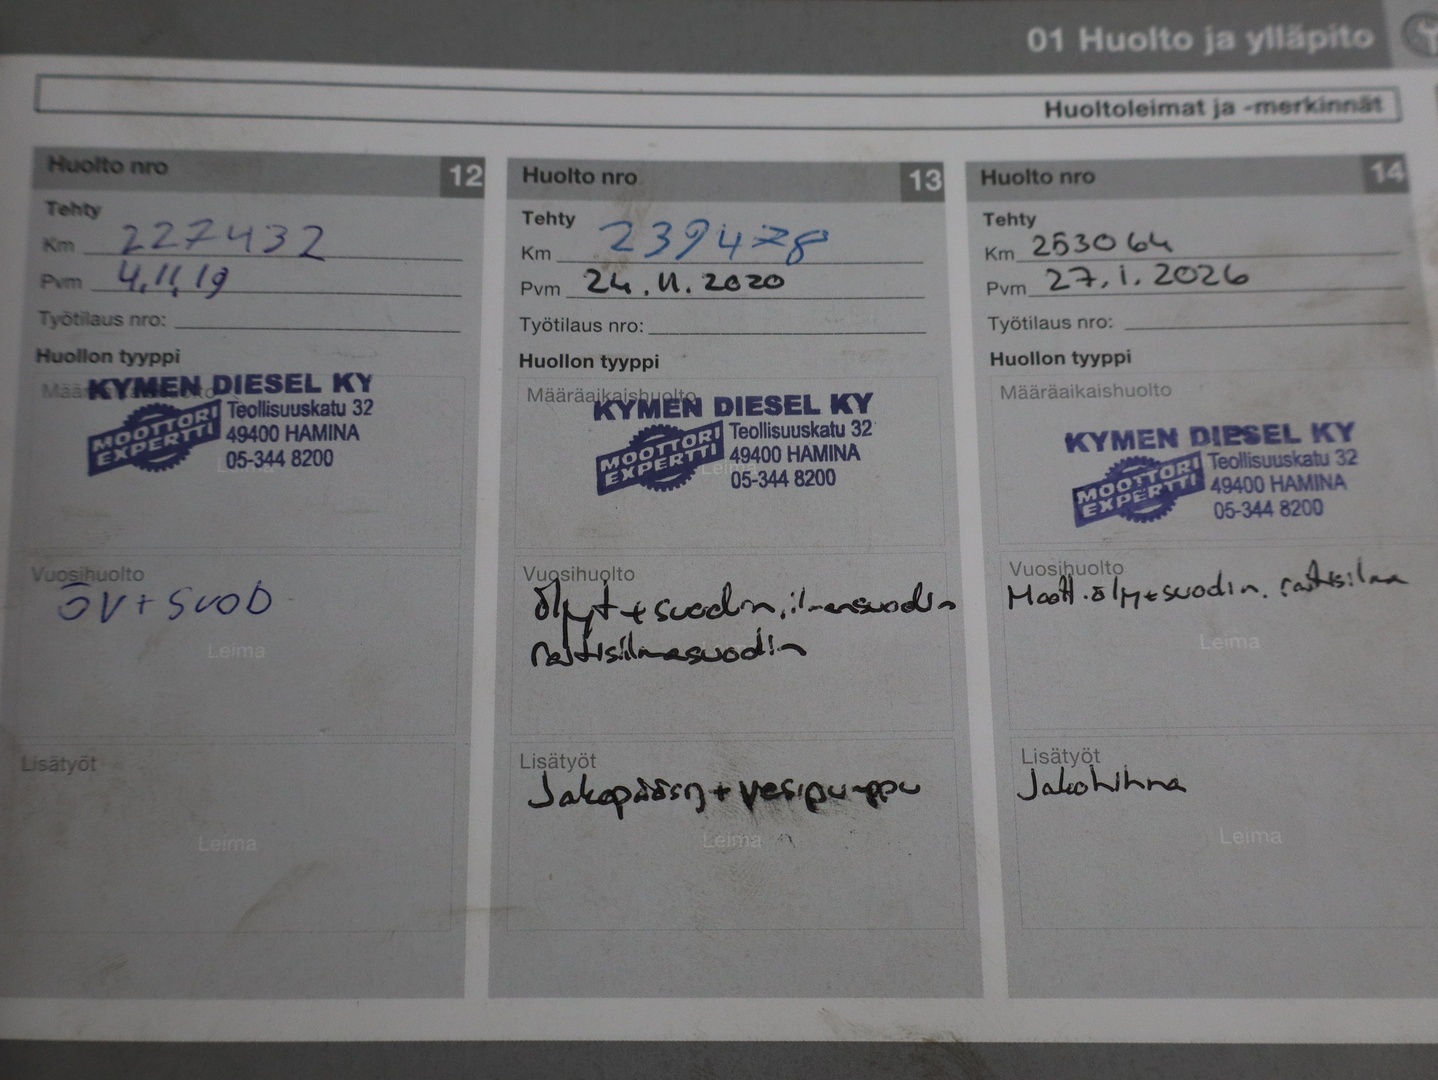 01 Huolto ja ylläpito
Huoltoleimat ja -merkinnät
Huolto nro 12
Tehty
Km 227432
Pvm 4.11.19
Työtilaus nro:
Huollon tyyppi
Määräaikaishuolto
KYMEN DIESEL KY
MOOTTORI EXPERTTI
Teollisuuskatu 32
49400 HAMINA
05-344 8200
Leima
Vuosihuolto
ÖV + SUOD
Leima
Lisätyöt
Leima
Huolto nro 13
Tehty
Km 239478
Pvm 24.11.2020
Työtilaus nro:
Huollon tyyppi
Määräaikaishuolto
KYMEN DIESEL KY
MOOTTORI EXPERTTI
Teollisuuskatu 32
49400 HAMINA
05-344 8200
Leima
Vuosihuolto
Öljyt + suodin, ilmansuodin
raitisilmasuodin
Lisätyöt
Jakopääsrj + vesipumppu
Leima
Huolto nro 14
Tehty
Km 253064
Pvm 27.1.2026
Työtilaus nro:
Huollon tyyppi
Määräaikaishuolto
KYMEN DIESEL KY
MOOTTORI EXPERTTI
Teollisuuskatu 32
49400 HAMINA
05-344 8200
Vuosihuolto
Moott.öljy+suodin. raitisilma
Leima
Lisätyöt
Jakohihna
Leima